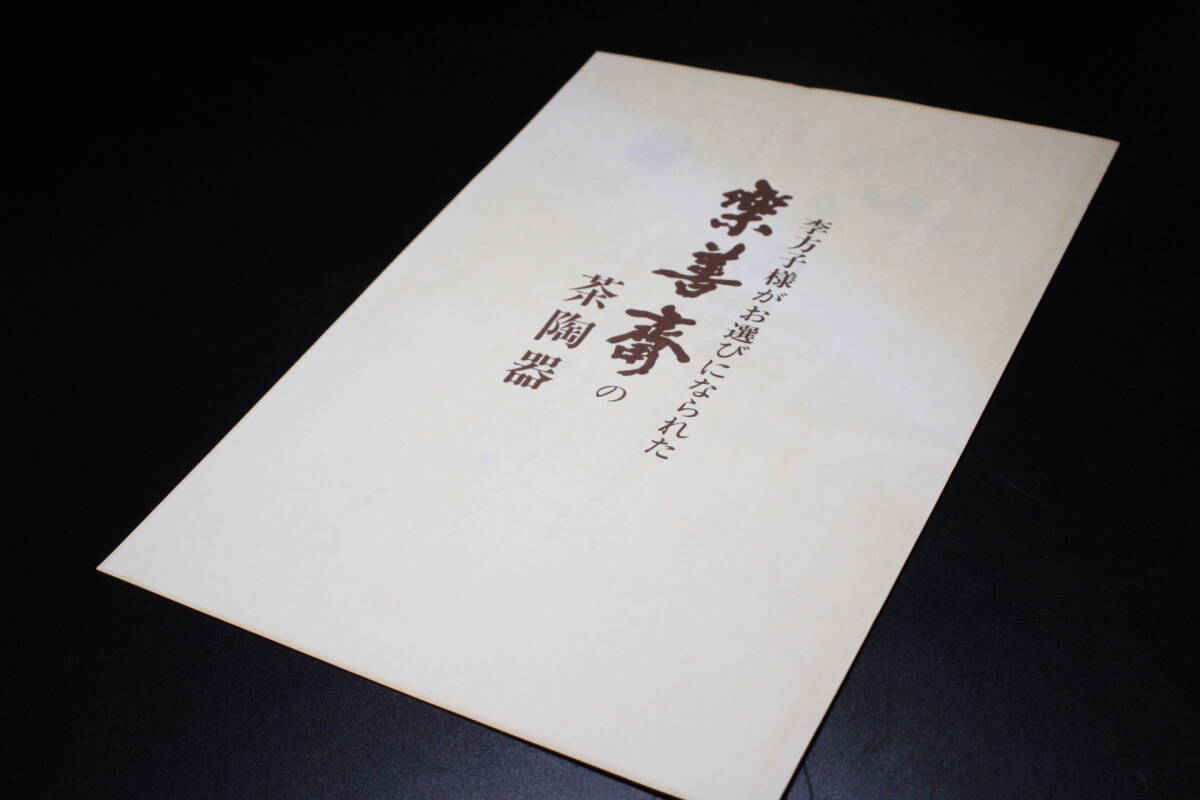 李方子様がお選びになられた
樂善齋の
茶陶器